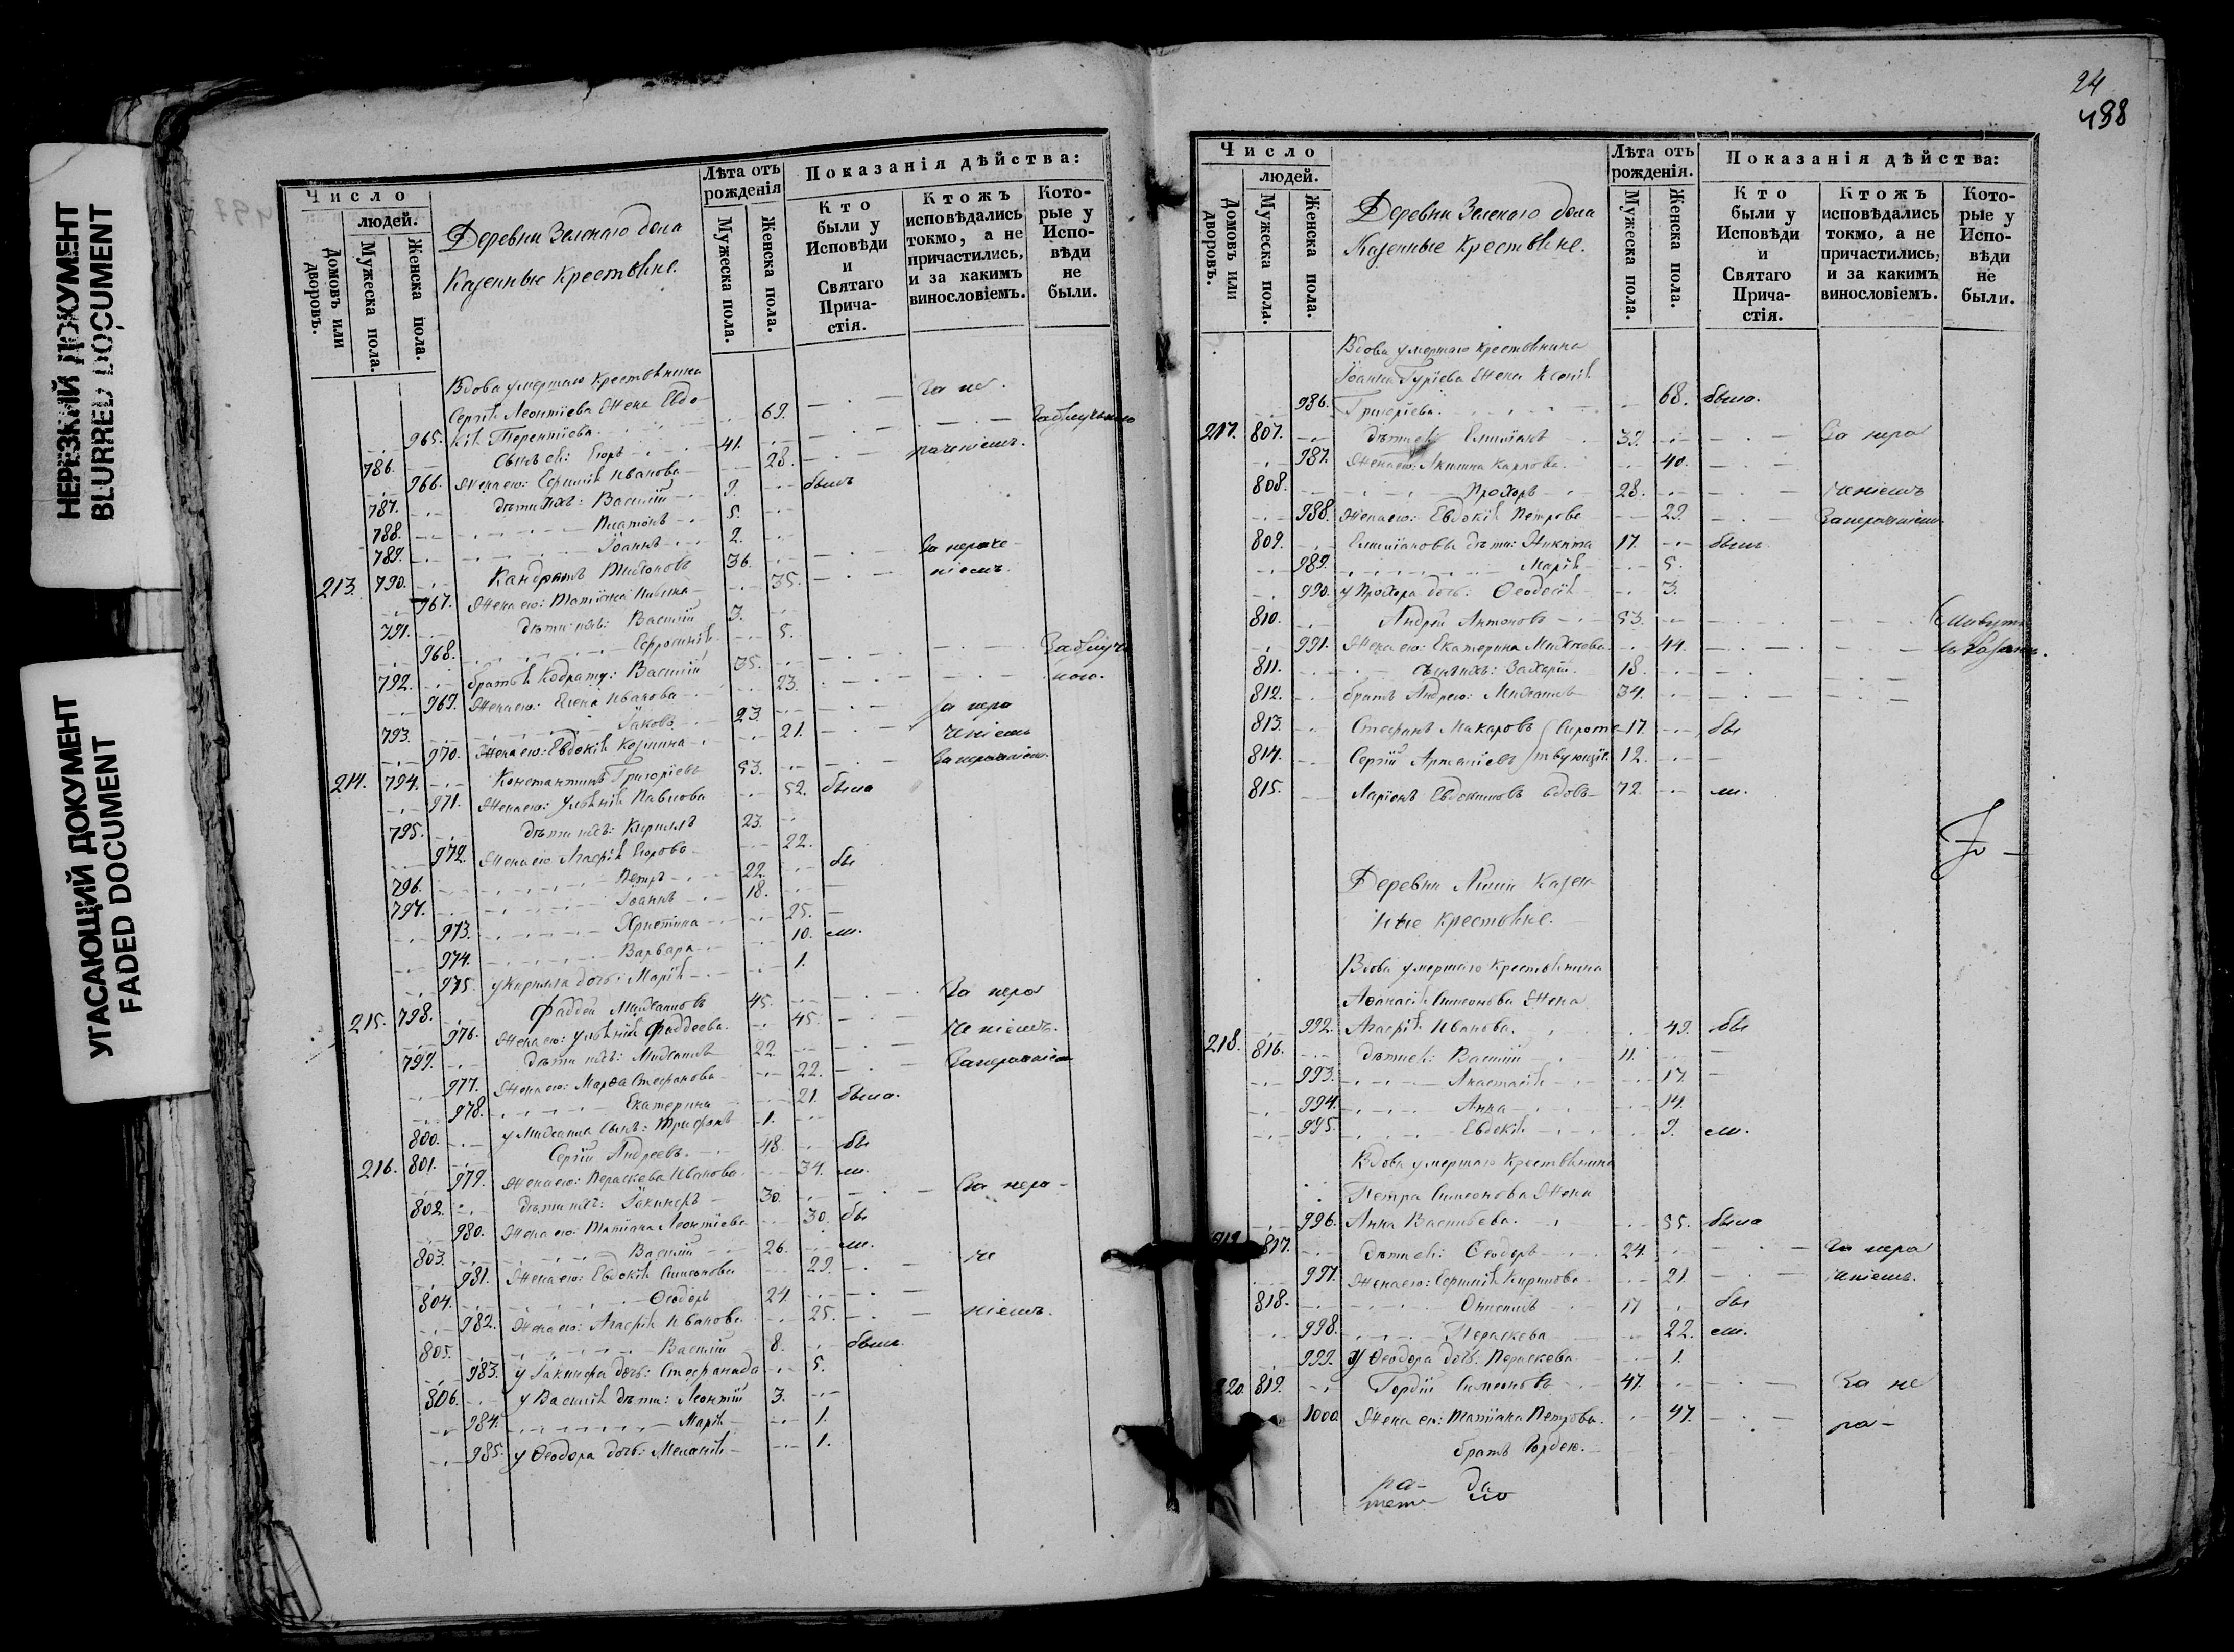 НЕРЕЗКИЙ ДОКУМЕНТ
BLURRED DOCUMENT
УГАСАЮЩИЙ ДОКУМЕНТ
FADED DOCUMENT
Число
людей.
Домовъ или дворовъ.
Мужеска пола.
Женска пола.
Деревни Зеленаго дола
Казенные крестьяне.
Лѣта отъ рожденія
Мужеска пола.
Женска пола.
Показанія дѣйства:
Кто были у Исповѣди и Святаго Прича-стія.
Ктожъ исповѣдались токмо, а не причастились, и за какимъ винословіемъ.
Кото-рые у Испо-вѣди не были.
Вдова умершаго крестьянина
Сергія Леонтіева жена Евдо-
965. кія Терентіева. 69. За не-
786. Сынъ ея: Егоръ 41.
966. Жена его: 28. раченіемъ.
787. дѣти ихъ: Василій 9. былъ
788. Платонъ 5.
789. Іоаннъ 2.
213. 790. Кандратъ 36. За нераче-
967. Жена его: Татіана 35. ніемъ.
791. дѣти ихъ: Василій 3.
968. Евфросинія 5.
792. братья Кодрату: Василій 35.
969. Жена его: Елена Иванова 23.
793. Іаковъ 23. за нера
970. Жена его: Евдокія Козмина 21. ченіемъ
214. 794. Константинъ Григоріевъ 53. За нераченіемъ.
971. Жена его: Ульянія Павлова 52. была
795. дѣти ихъ: Кириллъ 23.
972. Жена его Агафія Егорова 22.
796. Петръ 22. бы
797. Іоаннъ 18.
973. Христина 25.
974. Варвара 10. ли.
975. у Кирилла дочь: Марія 1.
215. 798. Фаддей Михаиловъ 45. За нера
976. Жена его: Ульянія Фаддеева. 45. ченіемъ.
799. дѣти ихъ: Михаилъ 22.
977. Жена его: Марѳа Стефанова 22. За нераченіемъ
978. Екатерина 21. была.
800. у Михаила сынъ: Трифонъ 1.
216. 801. Сергій Андреевъ. 48. бы
979. Жена его: Параскева Иванова. 34. ли.
802. дѣти ихъ: Іакинфъ 30. За нера-
980. Жена его: Татіана Леонтіева 30. бы
803. Василій 26. ли.
981. Жена его: Евдокія Симеонова 29. че
804. Ѳеодоръ 24.
982. Жена его: Агафія Иванова 25. ніемъ.
805. Василій 8. былъ.
983. у Іакинфа дочь: Стефанида 5.
806. у Василія дѣти: Леонтій 3.
984. Марія 1.
985. у Ѳеодора дочь: Меланія 1.
24
498
Число
людей.
Домовъ или дворовъ.
Мужеска пола.
Женска пола.
Деревни Зеленаго дола
Казенные крестьяне.
Лѣта отъ рожденія.
Мужеска пола.
Женска пола.
Показанія дѣйства:
Кто были у Исповѣди и Святаго Прича-стія.
Ктожъ исповѣдались токмо, а не причастились, и за какимъ винословіемъ.
Кото-рые у Испо-вѣди не были.
Вдова умершаго крестьянина
Іоанна Гуріева жена Ксенія
986. Григоріева. 68. была.
217. 807. дѣти ея: Емиліанъ 39. За нера
987. Жена его: Акилина Карпова. 40.
808. Прохоръ 28. ченіемъ
988. Жена его: Евдокія Петрова 29. За нераченіемъ
809. Емиліановы дѣти: Никита 17. былъ
989. Марія 5.
990. у Прохора дочь: Ѳеодосія 3.
810. Андрей Антоновъ 53.
991. Жена его: Екатерина 44.
811. Сынъ ихъ: Захарій 18.
812. братъ Андрею: Михаилъ 34.
813. Стефанъ Макаровъ (Сирот- 17. бы
814. Сергій Артеміевъ ствующіе. 12.
815. Ларіонъ Евдокимовъ вдовъ 72. ли.
Деревни Казен-
ные крестьяне.
Вдова умершаго крестьянина
Аѳанасія Симеонова жена
992. Агафія Иванова. 49. бы
218. 816. дѣти ея: Василій 11.
993. Анастасія 17.
994. Анна 14.
995. Евдокія 9. ли.
Вдова умершаго крестьянина
Петра Симеонова жена
996. Анна Васильева. 55. была
219. 817. дѣти ея: Ѳеодоръ 24. За нера
997. Жена его: Кирилова 21. ченіемъ.
818. Онисимъ 17 бы
998. Параскева 22. ли.
999. У Ѳеодора дочь: Параскева. 1.
220. 819. Гордій Симеоновъ 47. За не
1000 Жена его: Татіана Петрова. 47. ра-
братъ Гордею.